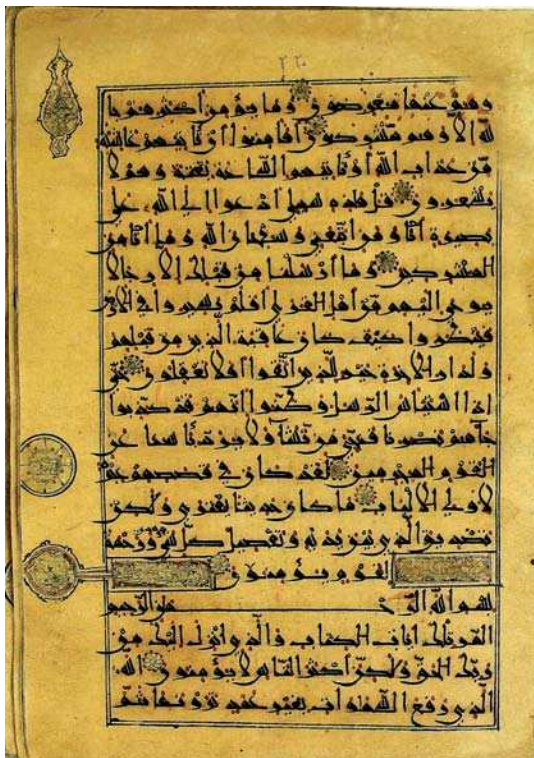 وهم عنها معرضون وما يؤمن أكثرهم با
لله إلا وهم مشركون أفأمنوا أن تأتيهم غاشية
من عذاب الله أو تأتيهم الساعة بغتة وهم لا
يشعرون قل هذه سبيلي أدعوا إلى الله على
بصيرة أنا ومن اتبعني وسبحن الله وما أنا من
المشركين وما أرسلنا من قبلك إلا رجالا
يوحى إليهم من أهل القرى أفلم يسيروا في الأرض
فينظروا كيف كان عاقبة الذين من قبلهم
ولدار الآخرة خير للذين اتقوا أفلا تعقلون حتى
إذا استيئس الرسل وظنوا أنهم قد كذبوا
جاءهم نصرنا فنجي من نشاء ولا يرد بأسنا عن
القوم المجرمين لقد كان في قصصهم عبرة
لأولي الألباب ما كان حديثا يفترى ولكن
تصديق الذي بين يديه وتفصيل كل شيء ورحمة
لقوم يؤمنون
بسم الله الرحمن الرحيم
المر تلك آيات الكتاب والذي أنزل إليك من
ربك الحق ولكن أكثر الناس لا يؤمنون الله
الذي رفع السموات بغير عمد ترونها ثم